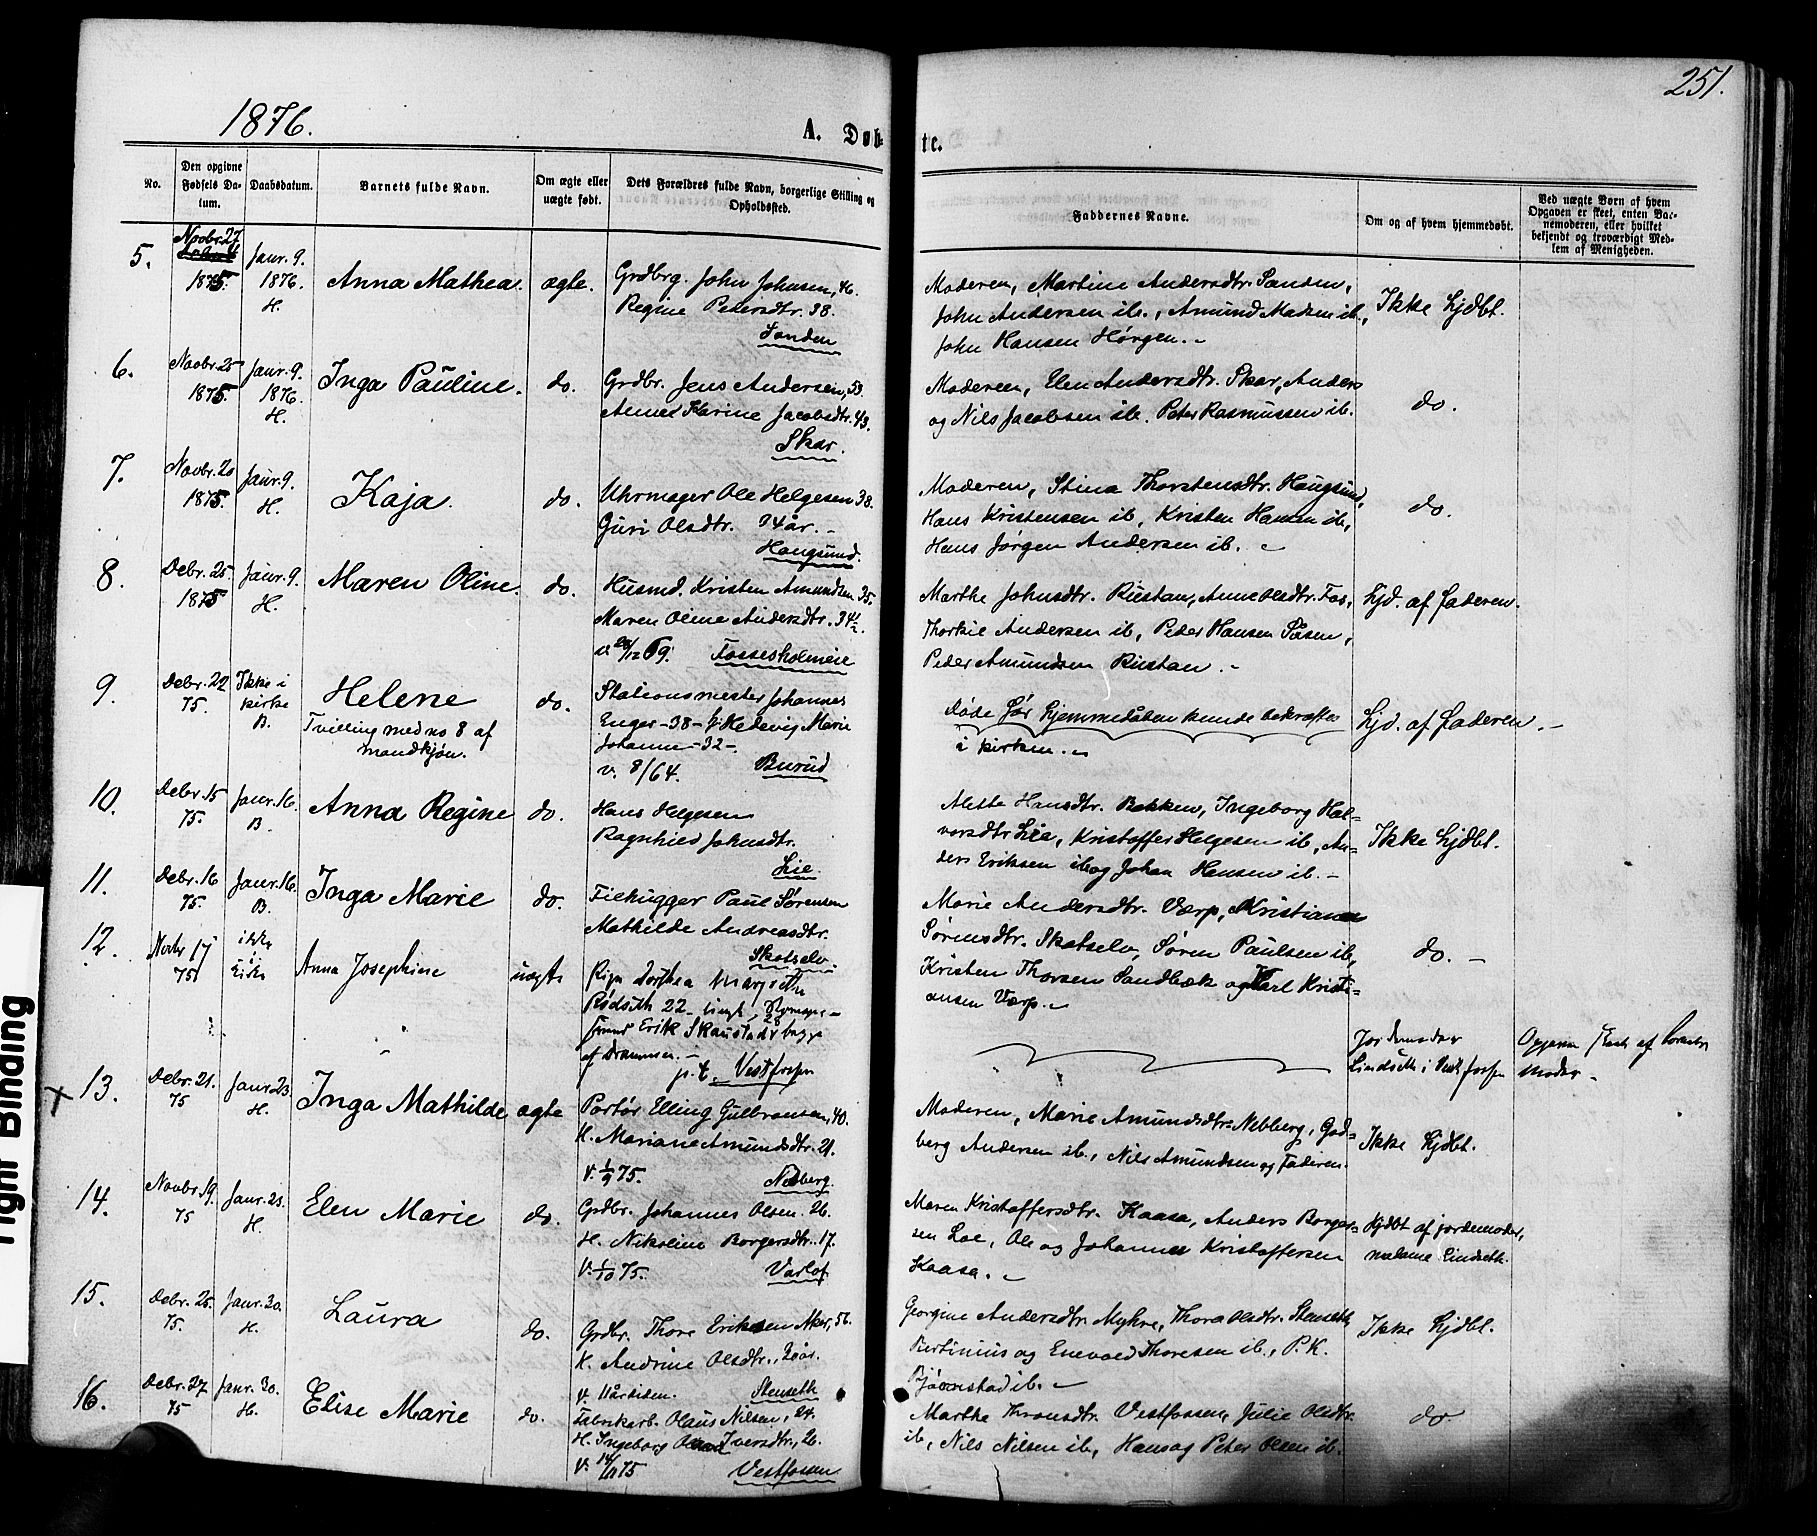 251.
1876.
A. Døb-
te.
No.
Den opgivne Fødsels Da-
tum.
Daabsdatum.
Barnets fulde Navn.
Om ægte eller
uægte født.
Dets Forældres fulde Navn, borgerlige Stilling og
Opholdssted.
Faddernes Navne.
Om og af hvem hjemmedøbt.
Ved uægte Børn af hvem
Opgaven er skeet, enten Bar-
nemoderen, eller hvilket
bekjendt og troværdigt Med-
lem af Menigheden.
5.
Novbr. 27
1875
Janr. 9.
1876.
H.
Anna Mathea.
ægte.
Grdbrg. John Johnsen, 46.
Regine Pedersdtr. 38.
Sanden
Moderen, Martine Andersdtr. Sanden,
John Andersen ib., Amund Madsen ib.,
John Hansen Hørgen. -
Ikke hjdbt.
6.
Novbr. 25
1875
Janr. 9.
1876.
H.
Inga Pauline.
do.
Grdbr. Jens Andersen, 53.
Anne Karine Jacobsdtr. 43.
Skar.
Moderen, Elen Andersdtr. Skar, Anders
og Nils Jacobsen ib. Peter Rasmussen ib.
do.
7.
Novbr. 20
1875
Janr. 9.
H.
Kaja.
do.
Uhrmager Ole Helgesen 38.
Guri Olsdtr. 34 år. -
Hougsund.
Moderen, Stina Thorstensdtr. Hougsund,
Hans Kristensen ib, Kristen Hansen ib,
Hans Jørgen Andersen ib. -
do.
8.
Debr. 25.
1875
Janr. 9
H.
Maren Oline.
do.
Husmd. Kristen Amundsen 35.
Maren Oline Andersdtr. 34½
v. 28/12 69. Fossesholmeie
Marthe Johnsdtr. Rustan, Anne Olsdtr. Fos,
Thorkil Andersen ib, Peder Hansen
Peder Amundsen Rustan. -
Hjd. af faderen.
9.
Debr. 22
75.
Ikke i
kirke
B.
Helene
Tvilling med no 8 af
mandkjøn.
do.
Stationsmester Johannes
Enger - 38 - & Hedevig Marie
Johanne - 32 -
v. 8/64. Burud
Døde før hjemmedåben kunde bekræftes
i kirken. -
Hjd. af faderen. -
10.
Debr. 15
75.
Janr. 16.
B.
Anna Regine
do.
Hans Helgesen
Ragnhild Johnsdtr.
Lie.
Mette Hansdtr. Bakken, Ingeborg Hal-
vorsdtr Lie, Kristoffer Helgesen ib, An-
ders Eriksen ib og Johan Hansen ib. -
Ikke hjdbt.
11.
Debr. 16
75.
Janr. 16.
B.
Inga Marie
do.
Filhugger Paul Sørensen
Mathilde Andreasdtr.
Skotselv.
Marie Andersdtr. Værp, Kristiane
Sørensdtr. Skotselv, Søren Paulsen ib,
Kristen Thorsen Sandbæk og Karl Kristi-
ansen Værp. -
do. -
12.
Novbr 17
75
ikke
i
Kirken
Anna Josephine
uægte
Pige Dorthea Margrethe
Rødseth 22 -
Erik Skaustad begge
af Drammen. -
p.t. Vestfossen
Jordemoder
Lindseth i Vestfossen
Opgaven skeet af Barnets
Moder -
x 13.
Debr. 21.
75
Janr. 23.
H.
Inga Mathilde
ægte
Portør Elling Gulbransen, 40.
H. Mariane Amundsdtr. 21.
v. 1/9 75. Nebberg.
Moderen, Marie Amundsdtr. Nebberg, Gud-
berg Andersen ib., Nils Amundsen og Faderen.
Ikke hjdbt.
14.
Novbr. 19.
75
Janr. 23.
H.
Elen Marie
do.
Grdbr. Johannes Olsen. 26.
H. Nikoline Borgersdtr. 17.
v. 1/10 75. Varlof
Maren Kristoffersdtr. Kaasa, Anders Borger-
sen Loe, Ole og Johannes Kristoffersen
Kaasa. -
Hjdbt af jordemoder,
madame Lindseth.
15.
Debr. 25.
75.
Janr. 30.
H.
Laura
do.
Grdbr. Thore Eriksen Aker, 56.
K. Andrine Olsdtr., 30 år.
v. 11 år siden. Stenseth
Georgine Andersdtr Myhre, Thora Olsdtr. Stenseth
Bertinius og Enevold Thoresen ib., P.K.
Bjørnstad ib. -
Ikke hjdbt.
16.
Debr. 27
75
Janr. 30.
H.
Elise Marie
do.
Fabrikarb. Olaus Nilsen, 24.
H. Ingeborg Iversdtr, 26.
v. 14/11 75 Vestfossen
Marthe Thronsdtr. Vestfossen, Julie Olsdtr.
ib, Nils Nilsen ib, Hans og Peter Olsen ib.
do
Tight Binding